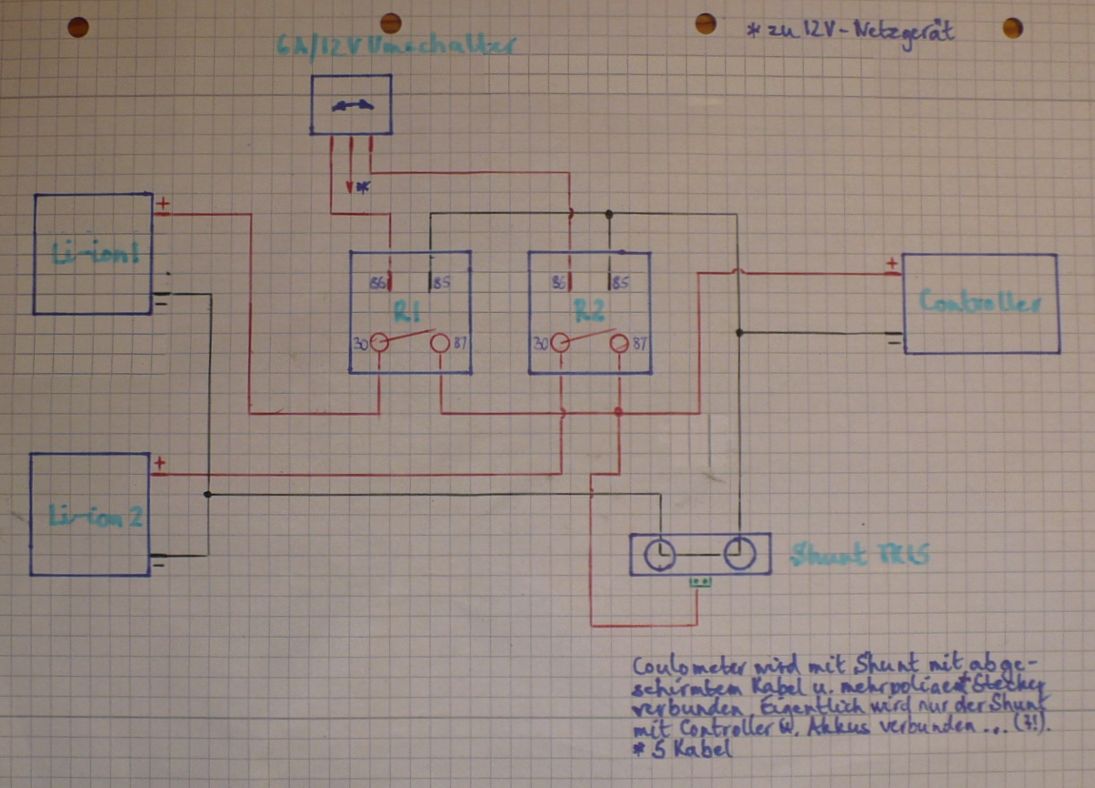 * zu 12V-Netzgerät
6A/12V Umschalter
*
+
Li-ion1
−
86
85
R1
30
87
86
85
R2
30
87
+
Controller
−
+
Li-ion 2
−
Shunt TK15
Coulometer wird mit Shunt mit abge-
schirmtem Kabel u. mehrpoligem Stecker
verbunden. Eigentlich wird nur der Shunt
mit Controller u. Akkus verbunden... (?!).
* 5 Kabel